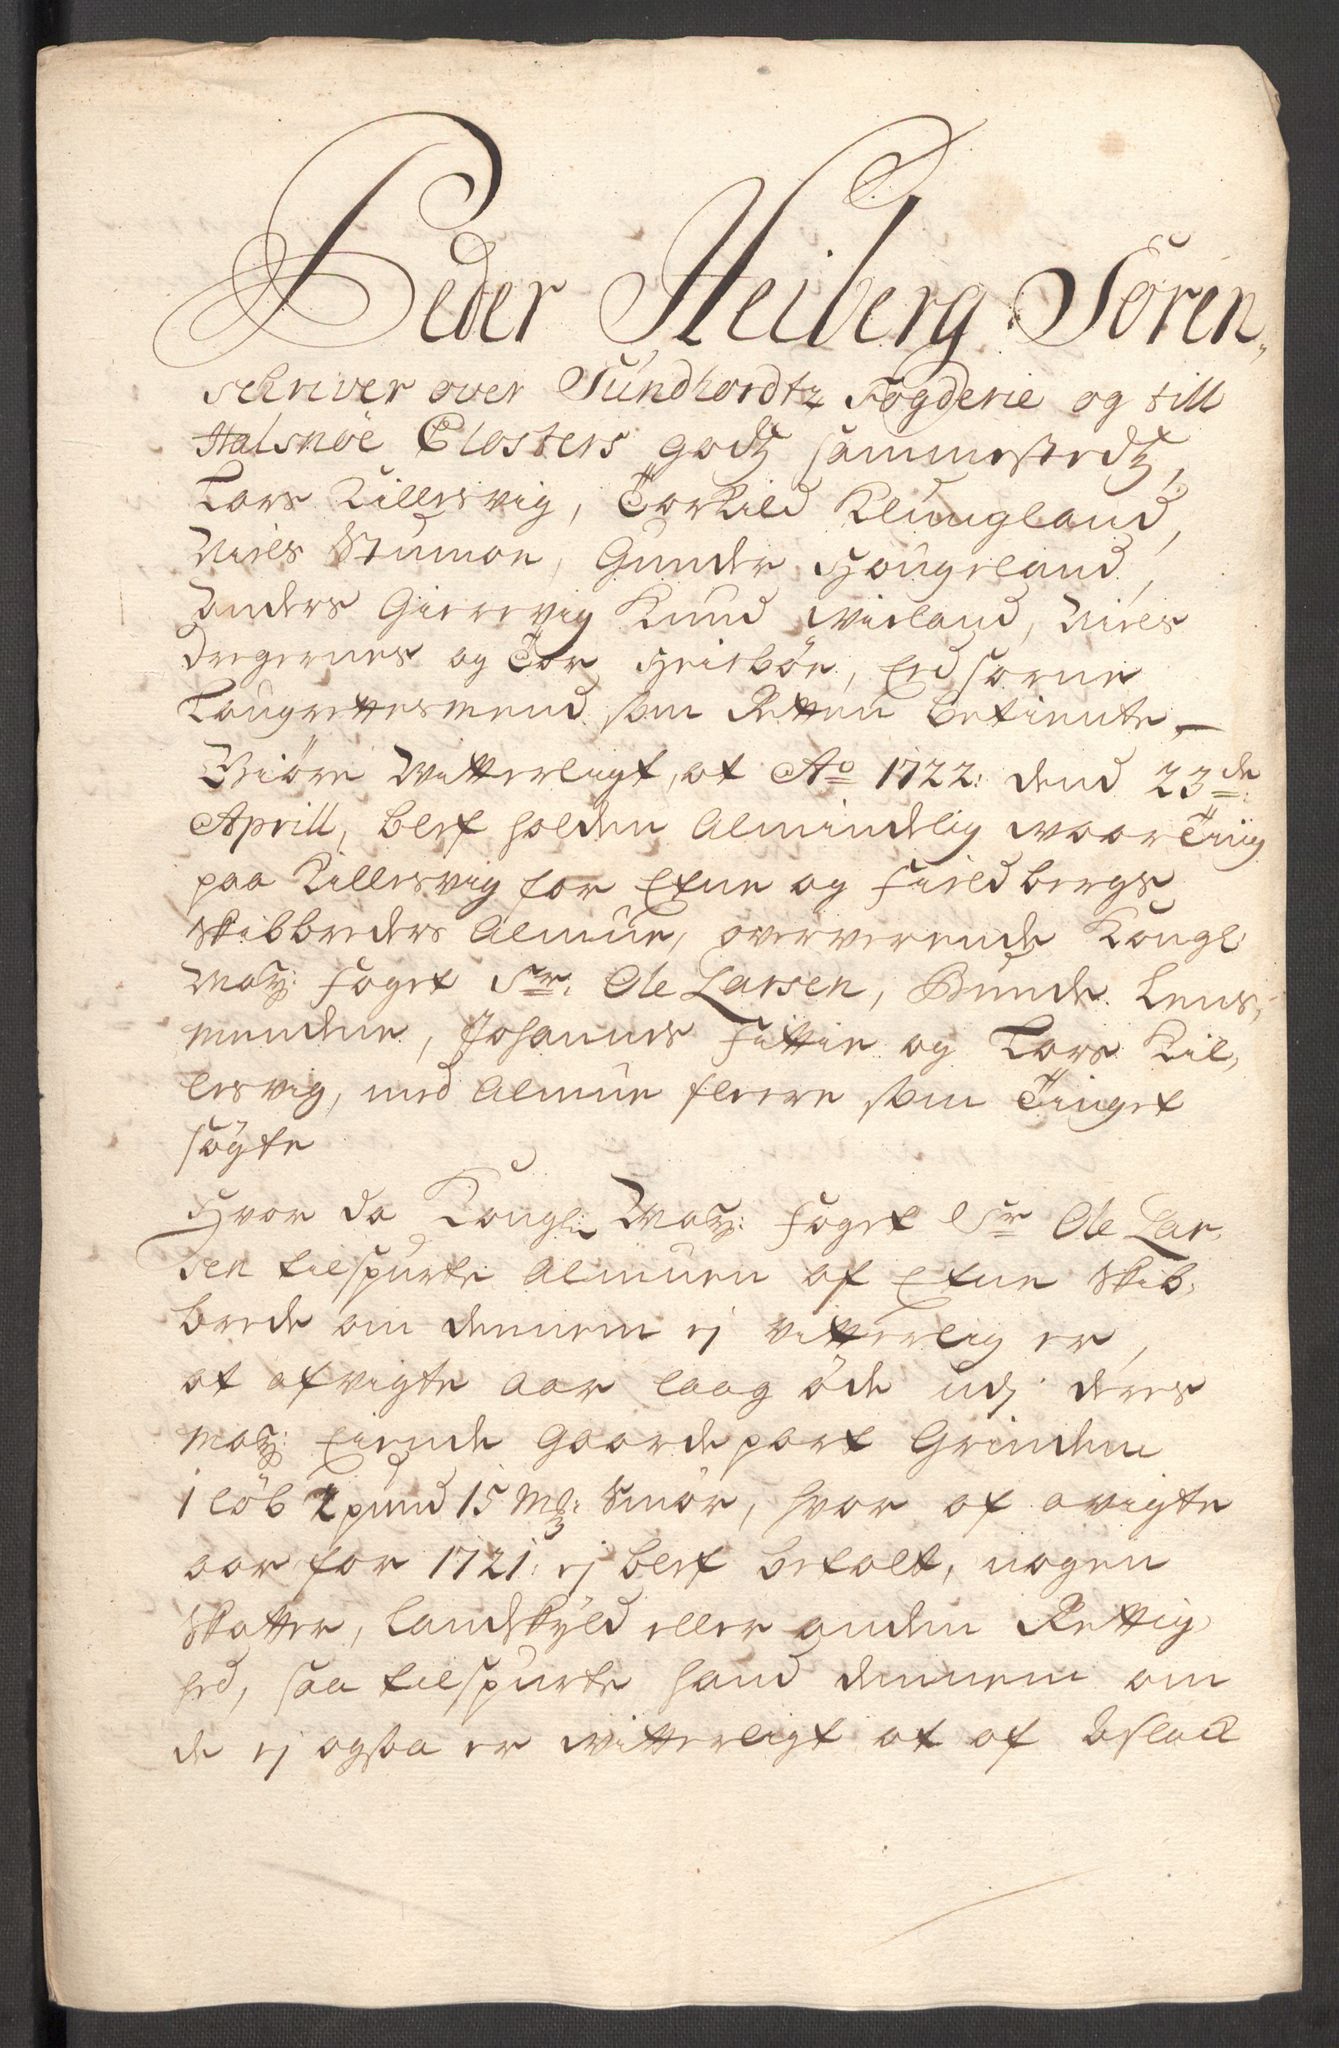 Peder Heiberg Soren„
schriver over Sundhordtz Fogderie og till
Halsnöe Closters godtz sammestedtz,
Lars Killesvig, Torkild Klungland,
Niels Stumon, Gunder Hougeland,
Anders Gierevig Knud Wieland, Niels
Dregernes og Tor Heirbön, Eedsorne
Laugrettesmend som Retten betiente,
Giöre Witterligt, at Ao 1722: dend 23de:
Aprill, blef holden Almindelig waarTing
paa Killesvig for Etne og Fieldbergs
Skibbreders Almue, oververende Kongl:
Mayts: Foget Sr. Ole Larsen, Bunde Lens„
mendene, Johannes Fittie og Lars Kil„
lesvig, med Almue fleere som Tinget
sögte
Hvor da Kongl: Mayts: Foget Sr Ole Lar„
sen tilspurte Almuen af Etne Skib„
brede om dennem ej vitterlig er,
at afvigte aar laag öde udj deres
Mayts: Eiende Gaardepart Grinden
1 löb 2 pund 15 Mrk: Smör, hvor af avigte
aar for 1721: ej blef betalt, nogen
Skatter, Landskyld eller anden Rettig„
hed, saa tilspurte hand dennem om
de ej ogsaa er witterligt at af Aslack